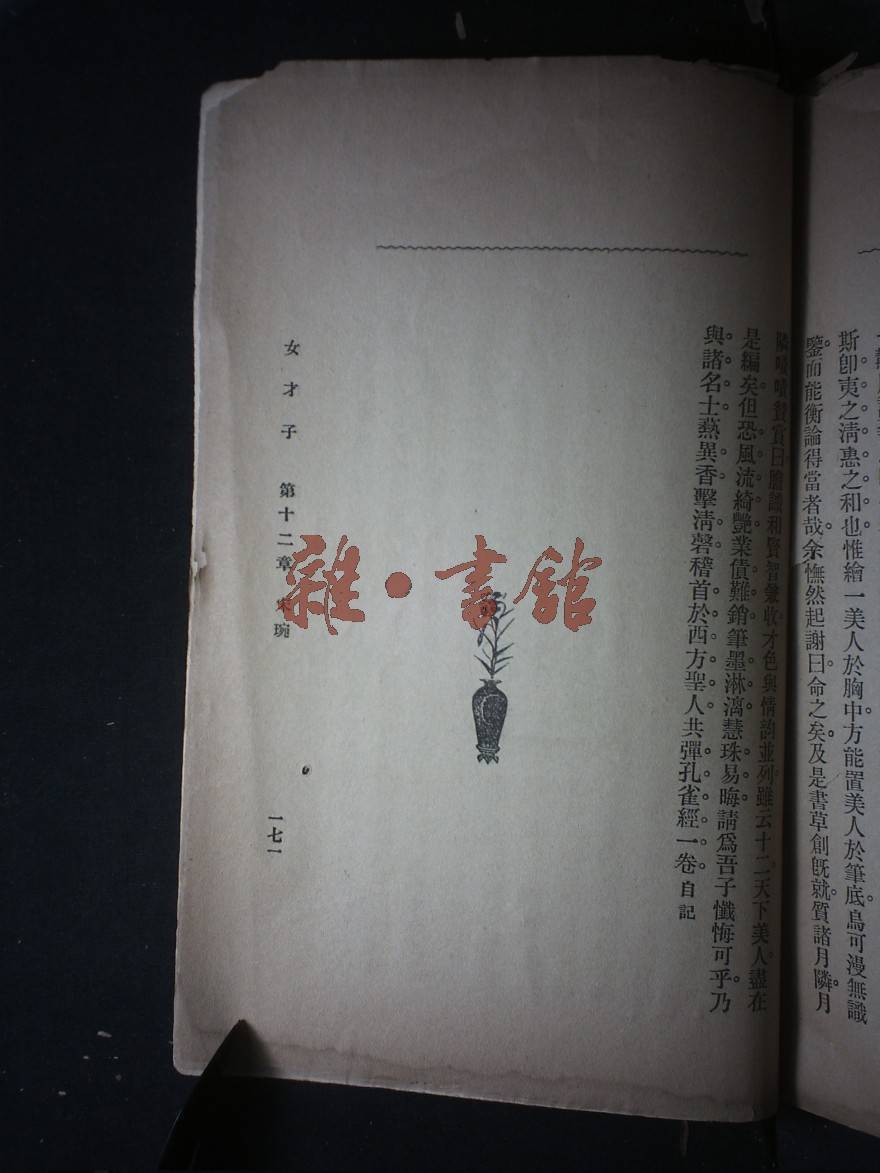 斯卽夷之淸惠之和也惟繪一美人於胸中方能置美人於筆底烏可漫無識
鑒而能衡論得當者哉余憮然起謝曰命之矣及是書草創旣就質諸月隣月
隣嘖嘖贊賞曰膽識和賢智兼收才色與情韵並列雖云十二天下美人盡在
是編矣但恐風流綺艷業債難銷筆墨淋漓慧珠易晦請爲吾子懺悔可乎乃
與諸名士爇異香擊淸磬稽首於西方聖人共彈孔雀經一卷 自記
女才子 第十二章 宋琬 一七一
雜·書館